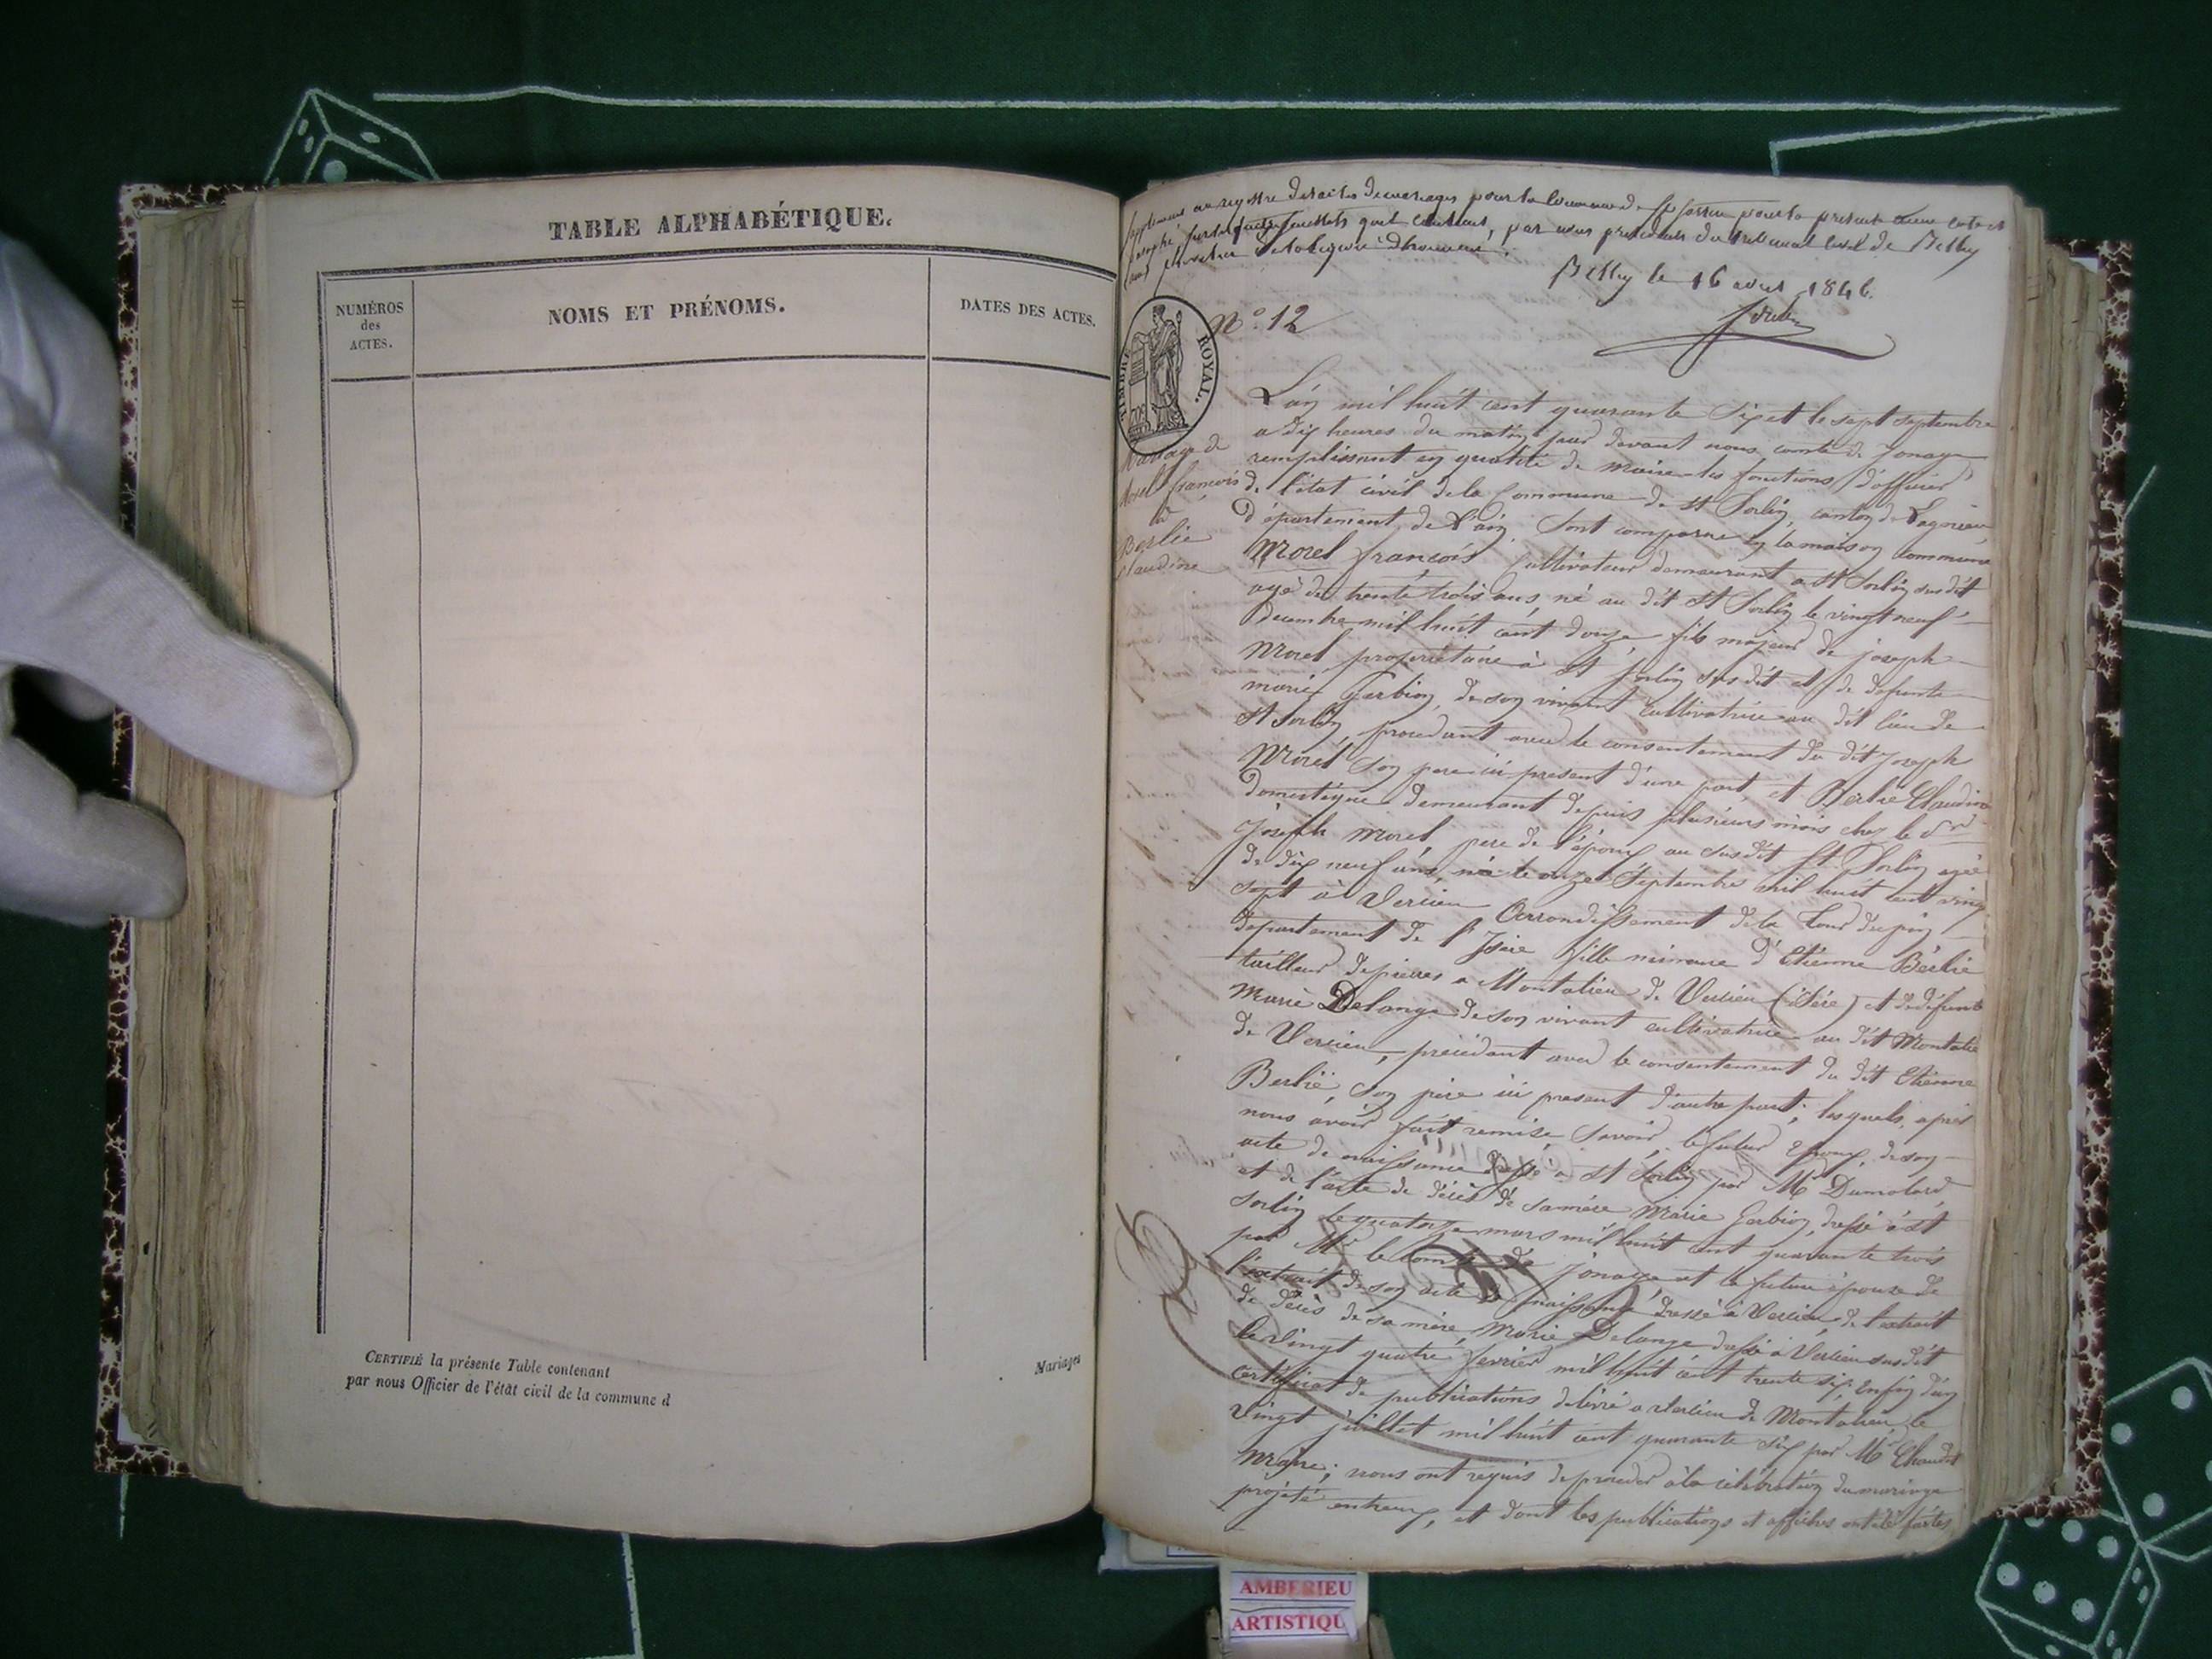 TABLE ALPHABÉTIQUE.
NUMÉROS
des
ACTES.
NOMS ET PRÉNOMS.
DATES DES ACTES.
CERTIFIÉ la présente Table contenant
par nous Officier de l'état civil de la commune d
Mariages
registre des actes de mariages pour la commune de St Sorlin pour la presente
feuillets par nous president du tribunal civil de Belley
Belley le 16 1846.
TIMBRE ROYAL.
N° 12
Mariage de
Morel françois
à
Berlie
Claudine
L'an mil huit cent quarante Six et le sept septembre
a dix heures du matin par devant nous comte de Jonage
remplissant en qualité de maire les fonctions d'officier
de l'état civil de la Commune de St Sorlin, canton de Lagnieu
département de l'ain. Sont comparu en la maison commune
Morel françois Cultivateur demeurant a St Sorlin susdit
agé de trente trois ans, né au dit St Sorlin le vingt neuf
decembre mil huit cent douze fils majeur de joseph
Morel propriétaire à St Sorlin susdit et de defunte
marie Garbion, de son vivant cultivatrice au dit lieu de
St Sorlin, procedant avec le consentement du dit Joseph
Morel son pere ici present d'une part, et Berlie Claudine
Domestique demeurant depuis plusieurs mois chez le Sr
Joseph Morel, pere de l'époux au susdit St Sorlin agé
de dix neuf ans, née le onze Septembre mil huit cent vingt
sept à Vercieu Arrondissement de la Tour du pin
departement de l'Isère fille mineure d'Etienne Berlie
tailleur de pierres a Montalieu de Vercieu (isère) et de defunte
Marie Delange de son vivant cultivatrice au dit Montalieu
de Vercieu, procedant avec le consentement du dit Etienne
Berlie, son père ici present d'autre part; lesquels, après
nous avoir fait remise, Savoir, le futur Epoux, de son
acte de naissance dressé a St Sorlin par Mr Dumolard
et de l'acte de décès de sa mère Marie Garbion, dressé à St
Sorlin le quatorze mars mil huit cent quarante trois
par Mr le comte de jonage et la future épouse de
l'extrait de son acte de naissance dressé à Vercieu, de l'extrait
de décès de sa mère Marie Delange dressé à Vercieu susdit
le vingt quatre fevrier mil huit cent trente six Enfin d'un
certificat de publications délivré a Vercieu de Montalieu, le
vingt juillet mil huit cent quarante six par Mr Chaudet
Maire; nous ont requis de proceder à la célébration du mariage
projeté entreux, et dont les publications et affiches ont été faites
AMBERIEU
ARTISTIQU